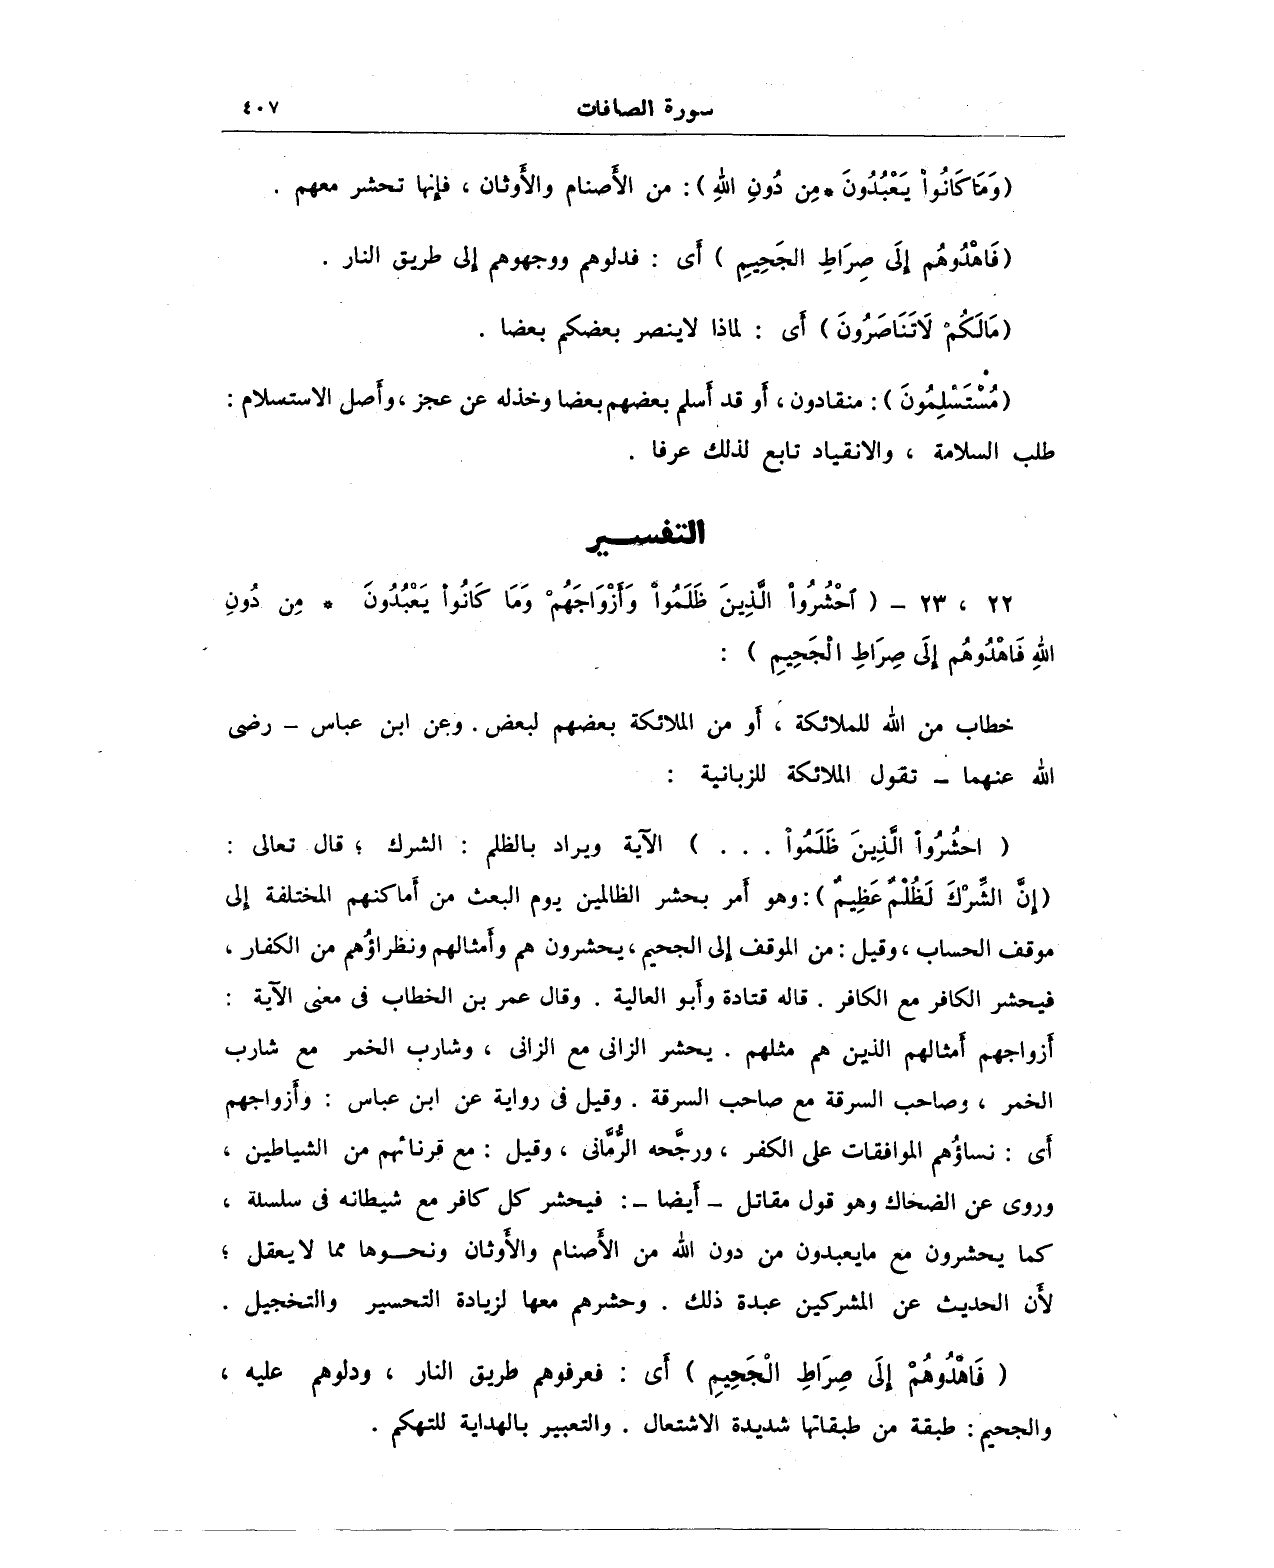 سورة الصافات ٤٠٧
(وَمَا كَانُواْ يَعْبُدُونَ * مِن دُونِ اللهِ) : من الأَصنام والأَوثان ، فإنها تحشر معهم .
(فَاهْدُوهُم إِلَى صِرَاطِ الجَحِيمِ ) أَى : فدلوهم ووجهوهم إلى طريق النار .
(مَالَكُمْ لَاتَنَاصَرُونَ) أَى : لماذا لاينصر بعضكم بعضا .
(مُسْتَسْلِمُونَ) : منقادون ، أَو قد أَسلم بعضهم بعضا وخذله عن عجز ، وأَصل الاستسلام :
طلب السلامة ، والانقياد تابع لذلك عرفا .
التفسـير
٢٢ ، ٢٣ – ( اَحْشُرُواْ الَّذِينَ ظَلَمُواْ وَأَزْوَاجَهُمْ وَمَا كَانُواْ يَعْبُدُونَ * مِن دُونِ
اللهِ فَاهْدُوهُم إِلَى صِرَاطِ الْجَحِيمِ ) :
خطاب من الله للملائكة ، أَو من الملائكة بعضهم لبعض . وعن ابن عباس – رضى
الله عنهما – تقول الملائكة للزبانية :
( احشُرُواْ الَّذِينَ ظَلَمُواْ . . . ) الآية ويراد بالظلم : الشرك ؛ قال تعالى :
(إِنَّ الشِّرْكَ لَظُلْمٌ عَظِيمٌ) : وهو أَمر بحشر الظالمين يوم البعث من أَماكنهم المختلفة إلى
موقف الحساب ، وقيل : من الموقف إلى الجحيم ، يحشرون هم وأَمثالهم ونظراؤُهم من الكفار ،
فيحشر الكافر مع الكافر . قاله قتادة وأَبو العالية . وقال عمر بن الخطاب فى معنى الآية :
أَزواجهم أَمثالهم الذين هم مثلهم . يحشر الزانى مع الزانى ، وشارب الخمر مع شارب
الخمر ، وصاحب السرقة مع صاحب السرقة . وقيل فى رواية عن ابن عباس : وأَزواجهم
أَى : نساؤُهم الموافقات على الكفر ، ورجَّحه الرُّمَّانى ، وقيل : مع قرنائهم من الشياطين ،
وروى عن الضحاك وهو قول مقاتل – أَيضا – : فيحشر كل كافر مع شيطانه فى سلسلة ،
كما يحشرون مع مايعبدون من دون الله من الأَصنام والأَوثان ونحـوها مما لا يعقل ؛
لأَن الحديث عن المشركين عبدة ذلك . وحشرهم معها لزيادة التحسير والتخجيل .
( فَاهْدُوهُمْ إِلَى صِرَاطِ الْجَحِيمِ ) أَى : فعرفوهم طريق النار ، ودلوهم عليه ،
والجحيم : طبقة من طبقاتها شديدة الاشتعال . والتعبير بالهداية للتهكم .